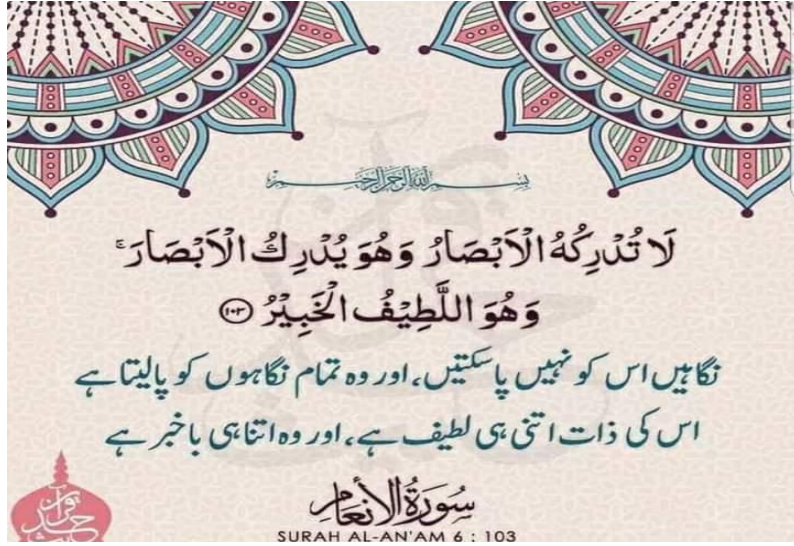 بِسْمِ اللّٰهِ الرَّحْمٰنِ الرَّحِيْمِ
لَا تُدْرِكُهُ الْاَبْصَارُ وَهُوَ يُدْرِكُ الْاَبْصَارَ ۚ
وَهُوَ اللَّطِيْفُ الْخَبِيْرُ ﴿۱۰۳﴾
نگاہیں اس کو نہیں پاسکتیں، اور وہ تمام نگاہوں کو پالیتا ہے
اس کی ذات اتنی ہی لطیف ہے، اور وہ اتنا ہی باخبر ہے
سُورَةُ الأَنعَامِ
SURAH AL-AN'AM 6 : 103